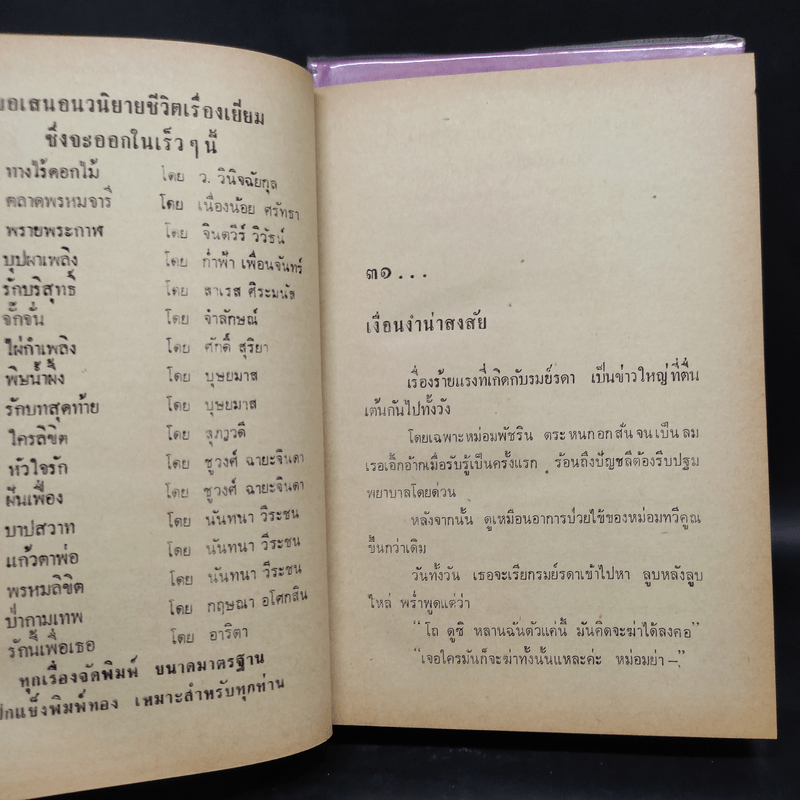 ขอเสนอนวนิยายชีวิตเรื่องเยี่ยม
ซึ่งจะออกในเร็ว ๆ นี้
ทางไร้ดอกไม้ โดย ว. วินิจฉัยกุล
ตลาดพรหมจารี โดย เนื่องน้อย ศรัทธา
พรายพระกาฬ โดย จินตวีร์ วิวัธน์
บุปผาเพลิง โดย ก่ำฟ้า เพื่อนจันทร์
รักบริสุทธิ์ โดย สาเรส ศิระมนัส
จั๊กจั่น โดย จำลักษณ์
ไผ่กำเพลิง โดย ศักดิ์ สุริยา
พิษน้ำผึ้ง โดย บุษยมาส
รักบทสุดท้าย โดย บุษยมาส
ใครลิขิต โดย สุภาวดี
หัวใจรัก โดย ชูวงศ์ ฉายะจินดา
ฝันเฟื่อง โดย ชูวงศ์ ฉายะจินดา
บาปสวาท โดย นันทนา วีระชน
แก้วตาพ่อ โดย นันทนา วีระชน
พรหมลิขิต โดย นันทนา วีระชน
ป่ากามเทพ โดย กฤษณา อโศกสิน
รักนี้เพื่อเธอ โดย อาริตา
ทุกเรื่องจัดพิมพ์ ขนาดมาตรฐาน
ปกแข็งพิมพ์ทอง เหมาะสำหรับทุกท่าน
๓๑...
เงื่อนงำน่าสงสัย
เรื่องร้ายแรงที่เกิดกับรมย์รดา เป็นข่าวใหญ่ที่ตื่น
เต้นกันไปทั้งวัง
โดยเฉพาะหม่อมพัชริน ตระหนกอกสั่นจนเป็นลม
เรอเอิ๊กอ้ากเมื่อรับรู้เป็นครั้งแรก ร้อนถึงปัญชลีต้องรีบปฐม
พยาบาลโดยด่วน
หลังจากนั้น ดูเหมือนอาการป่วยไข้ของหม่อมทวีคูณ
ขึ้นกว่าเดิม
วันทั้งวัน เธอจะเรียกรมย์รดาเข้าไปหา ลูบหลังลูบ
ไหล่ พร่ำพูดแต่ว่า
“โถ ดูซิ หลานฉันตัวแค่นี้ มันคิดจะฆ่าได้ลงคอ”
“เจอใครมันก็จะฆ่าทั้งนั้นแหละค่ะ หม่อมย่า –”